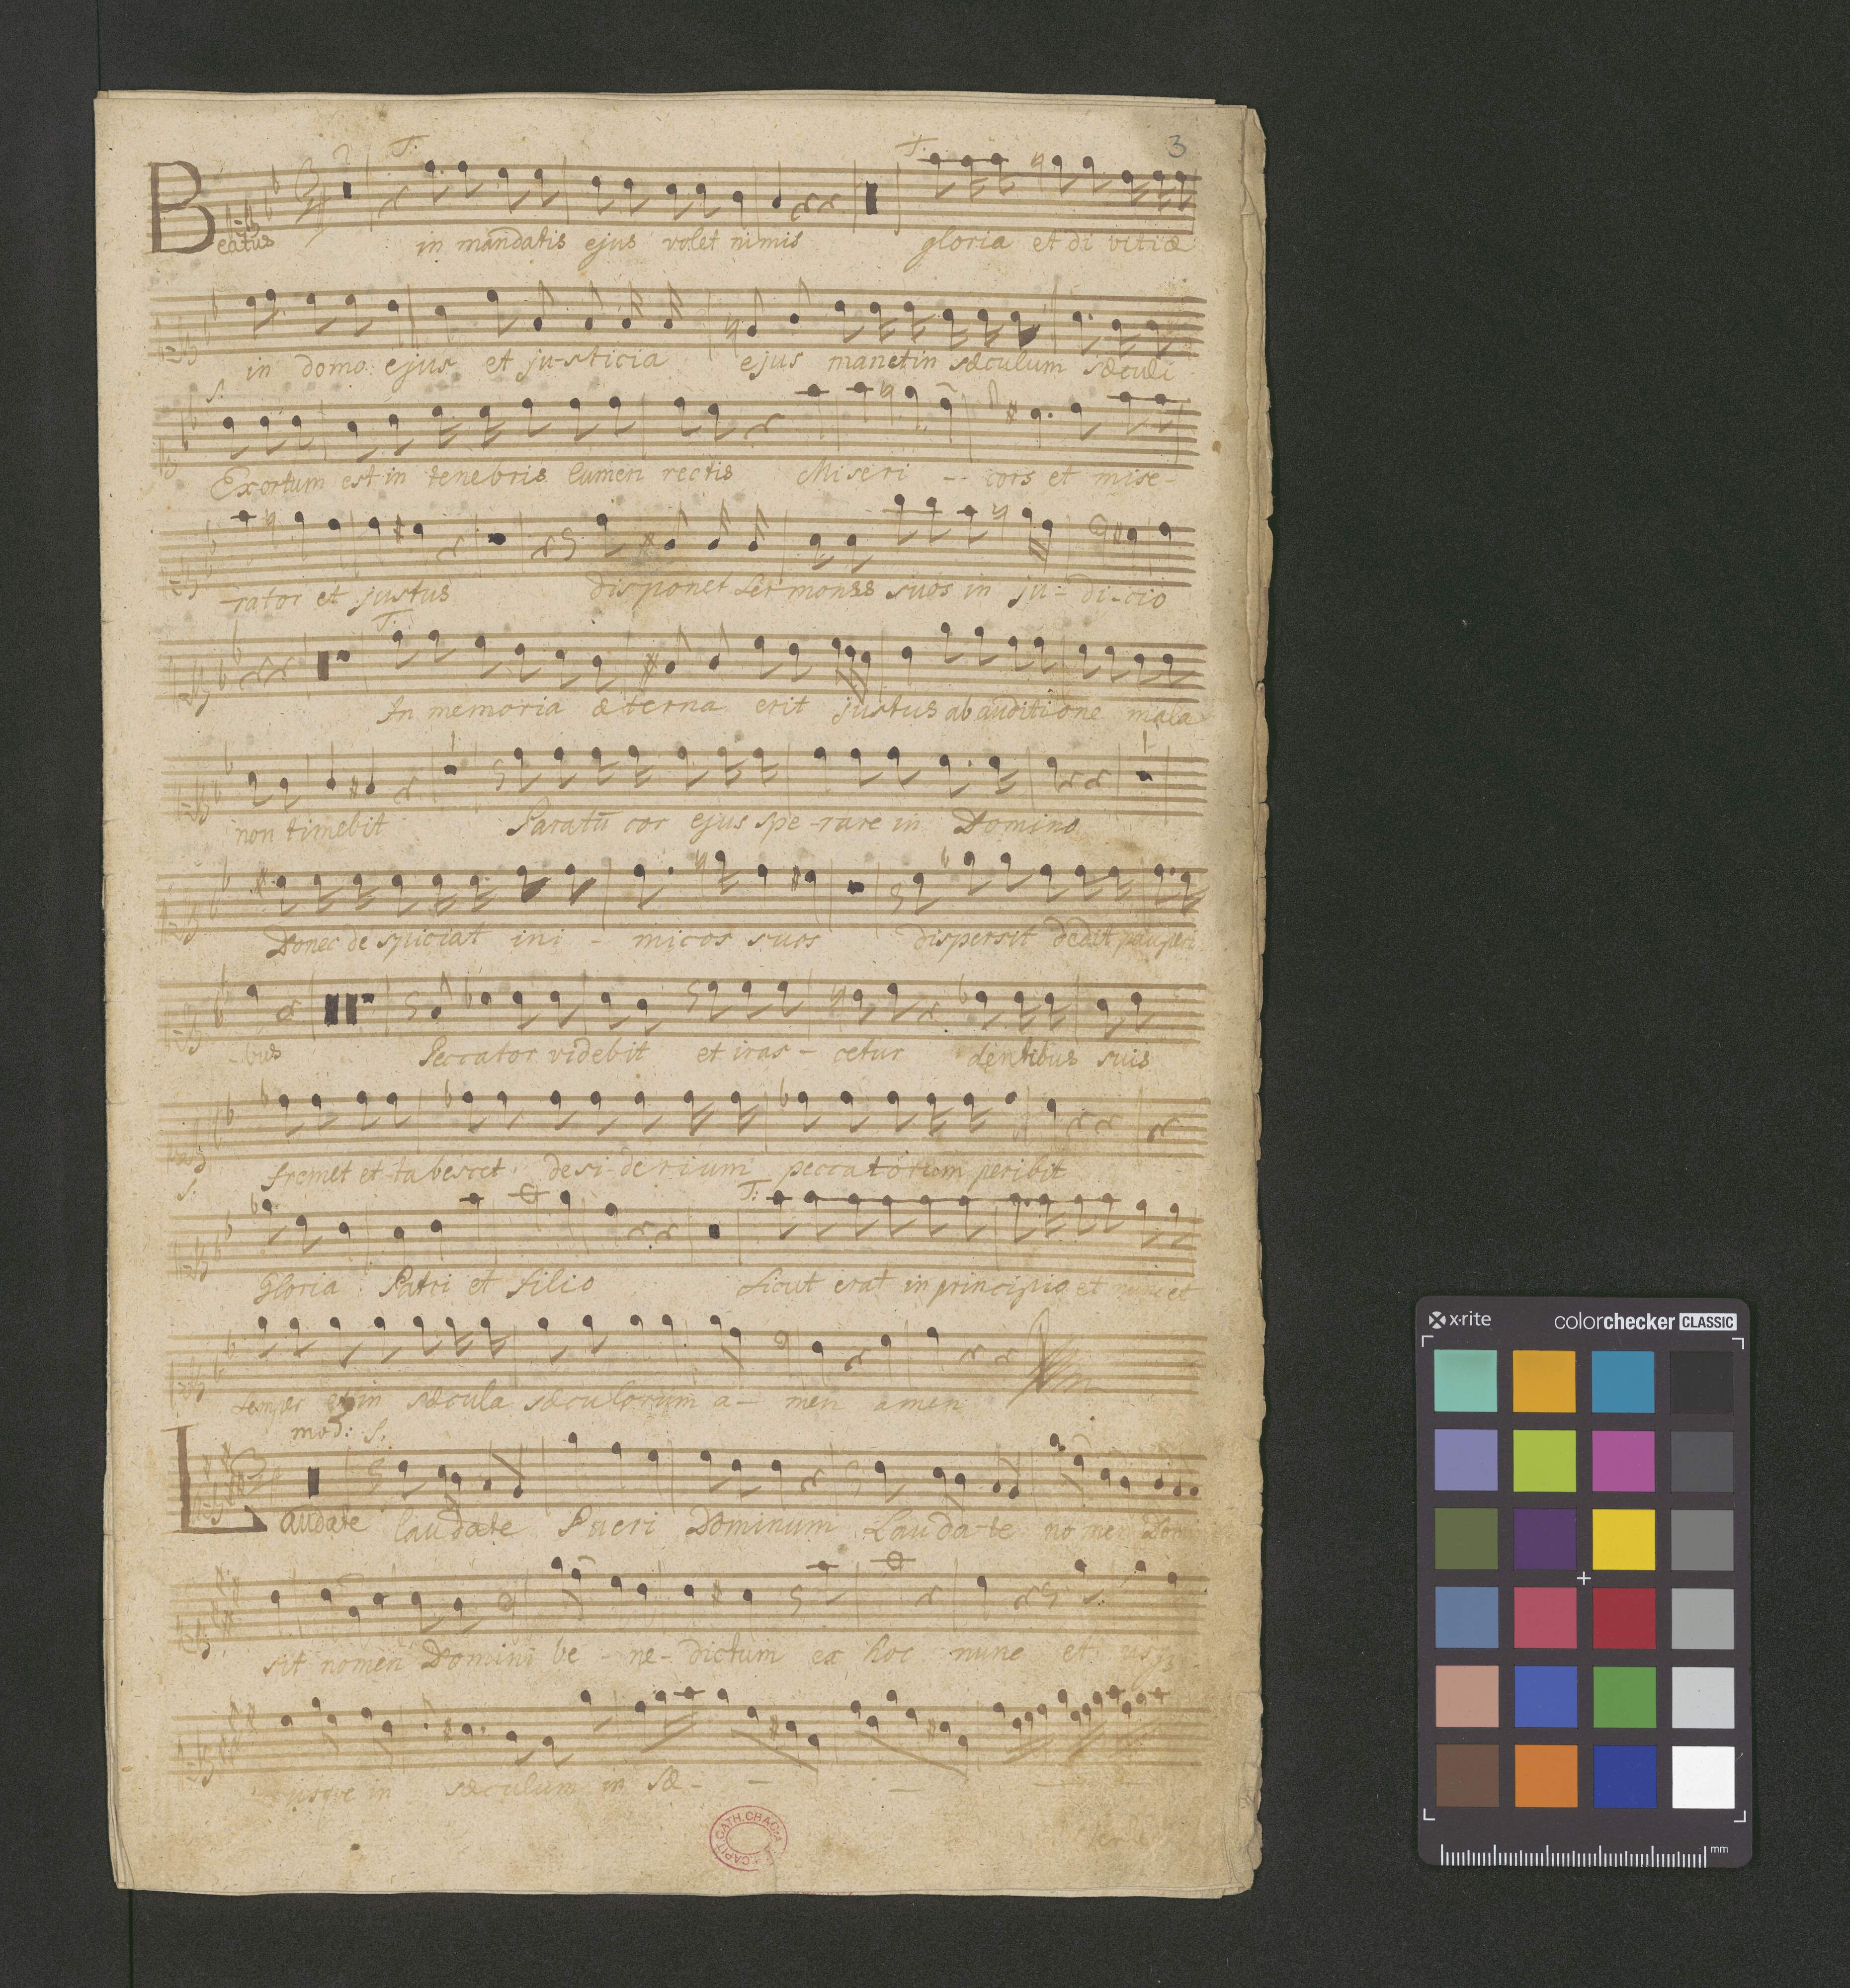 3
2 T. T.
Beatus in mandatis ejus volet nimis gloria et di vitiæ
in domo ejus et ju-sticia ejus manet in sæculum sæculi
S.
Exortum est in tenebris lumen rectis Miseri -- cors et mise-
-rator et justus disponet sermones suos in ju- di-cio
T.
In memoria æterna erit justus ab auditione mala
non timebit Paratū cor ejus spe-rare in Domino
Donec despiciat ini - micos suos dispersit dedit pauperi
-bus Peccator videbit et iras - cetur dentibus suis
fremet et tabescet desi-derium peccatorum peribit
S. T:
Gloria Patri et filio sicut erat in principio et nunc et
semper et in sæcula sæculorum a- men amen
mod: S.
Laudate laudate Pueri Dominum Lauda-te nomen Domi
sit nomen Domini be - ne- dictum ex hoc nunc et usq3
usque in sæculum in sæ- - -
CAPIT. CATH. CRAC.
x·rite colorchecker CLASSIC
mm